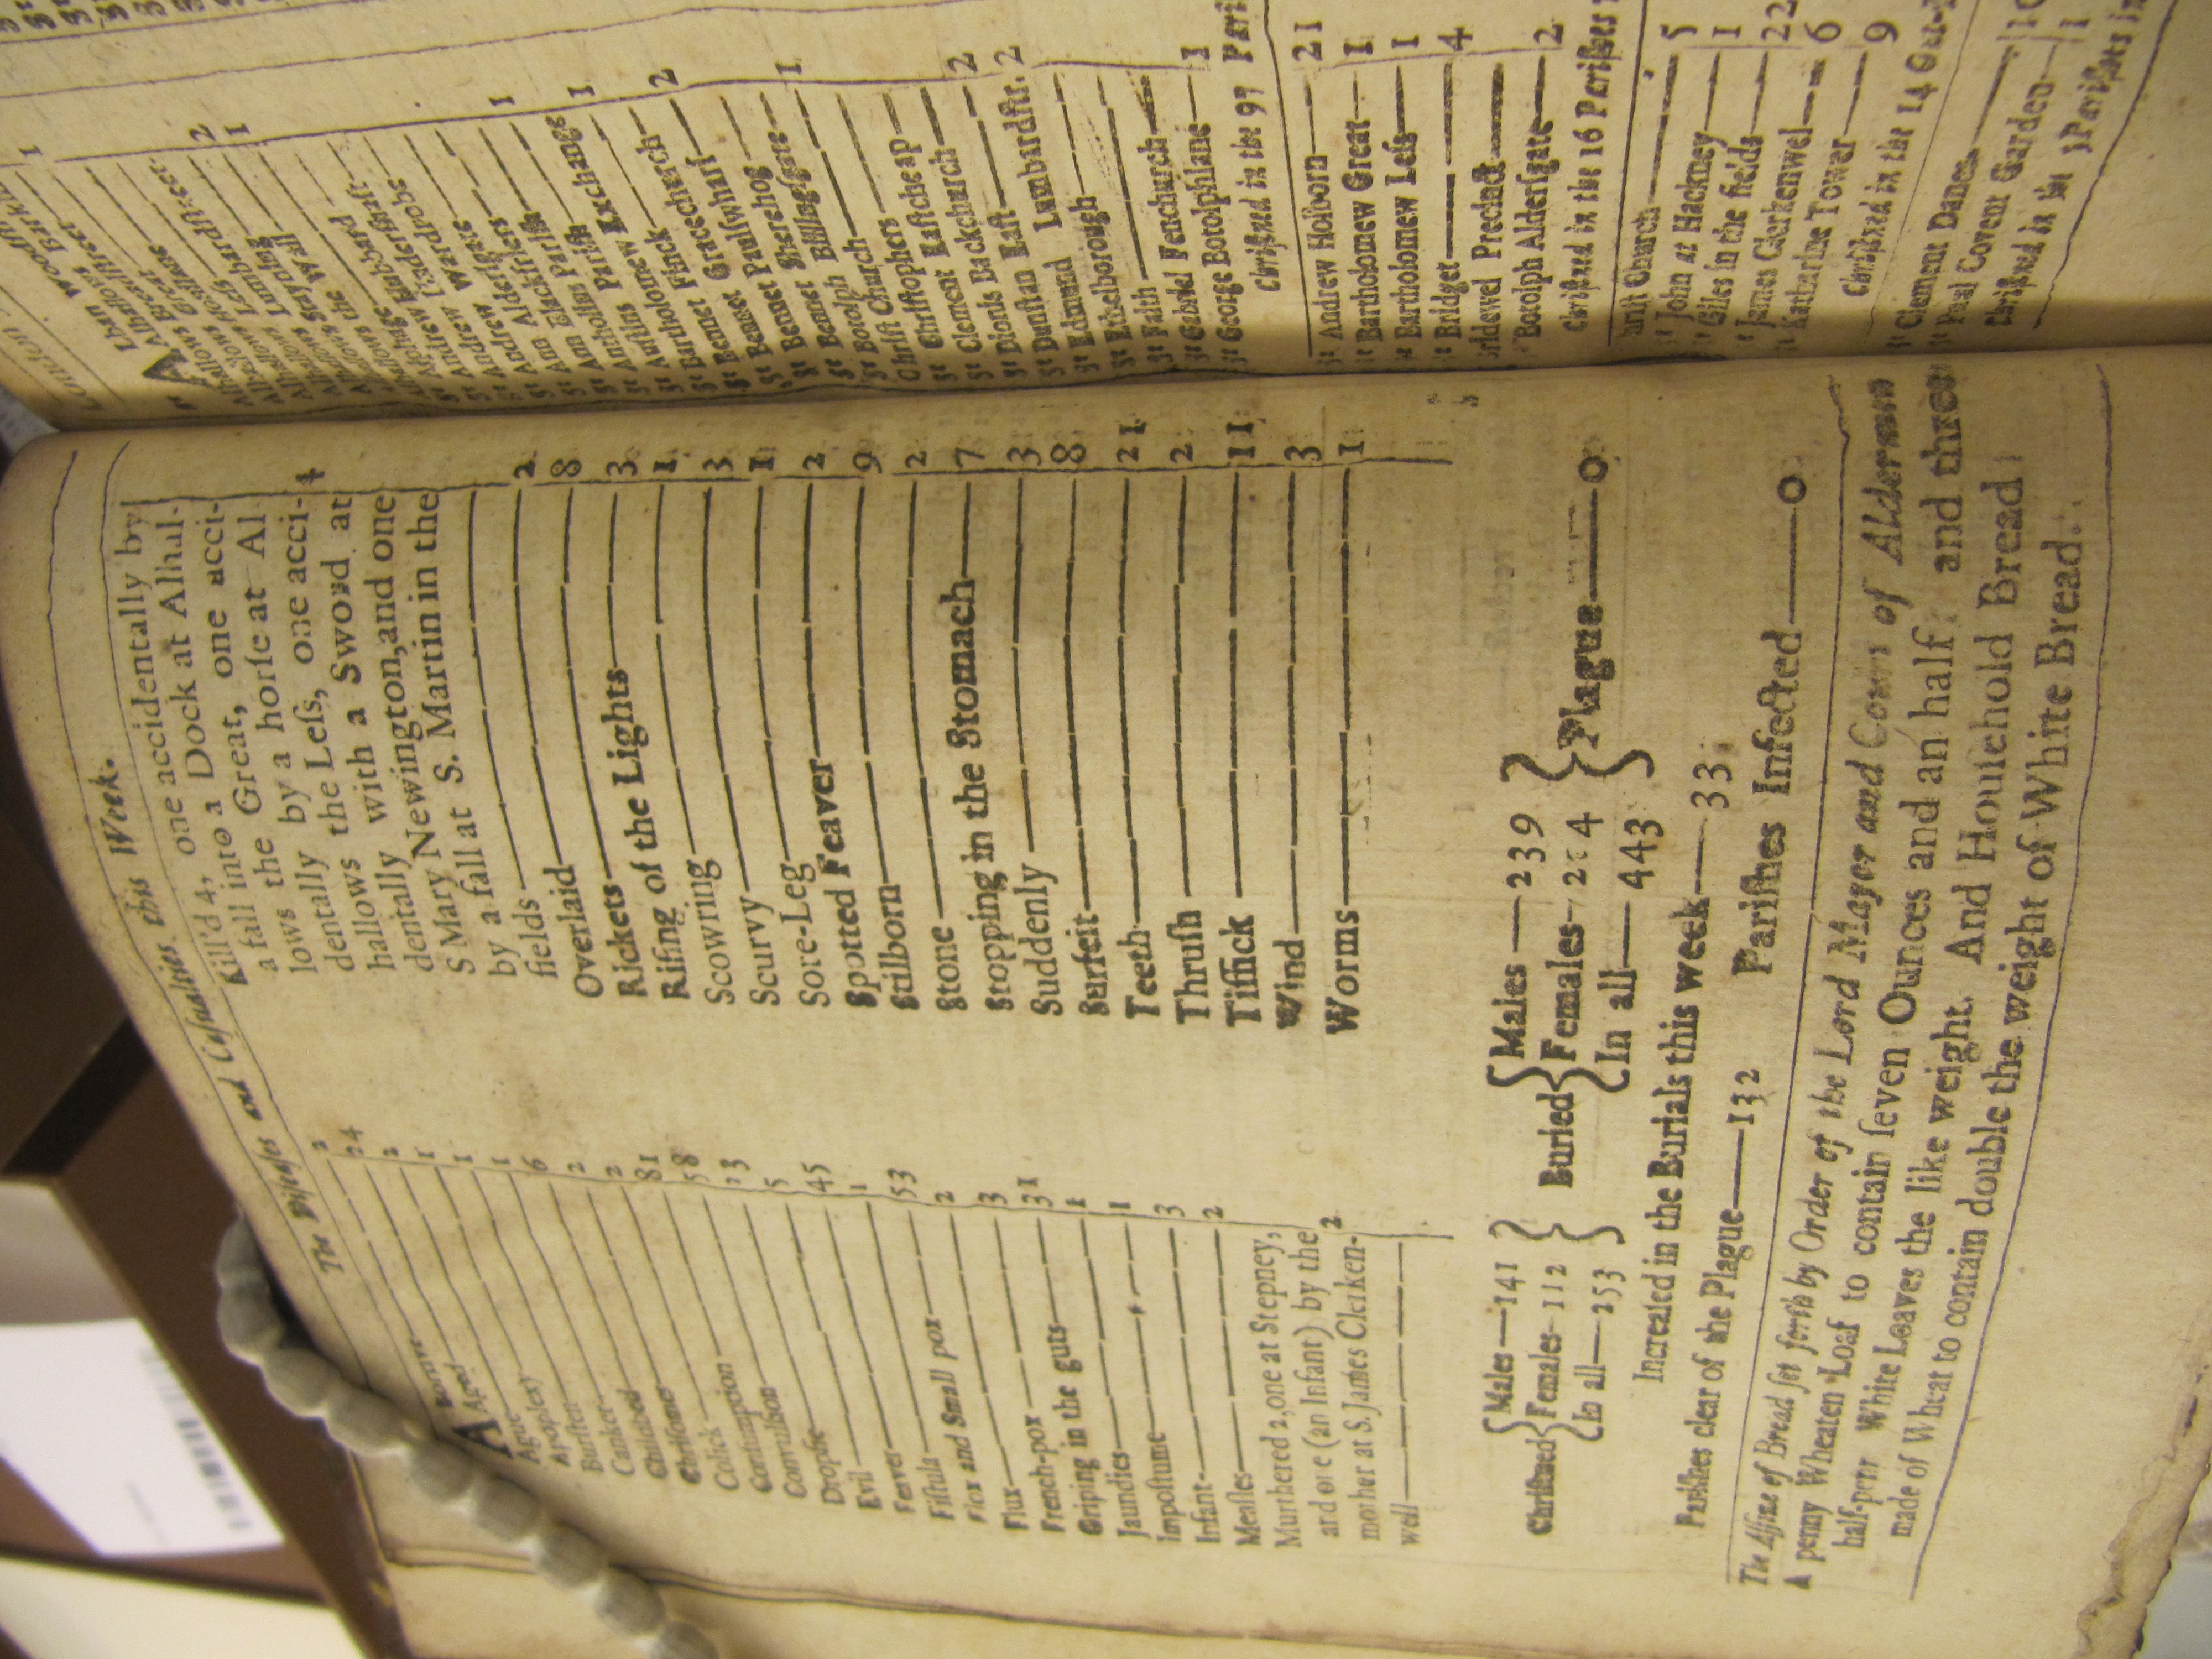 The Diseases and Casualties this Week.
Abortive 2
Aged 24
Ague 2
Apoplexy 1
Bursten 1
Canker 1
Childbed 6
Chrisomes 2
Colick 2
Consumption 81
Convulsion 58
Dropsie 33
Evil 5
Feaver 45
Fistula 1
Flox and Small pox 53
Flux 2
French-pox 3
Griping in the guts 31
Jaundies 1
Impostume 1
Infant 3
Measles 2
Murthered 2, one at Stepney,
and one (an Infant) by the
mother at S. James Clerken-
well 2
Kill'd 4, one accidentally by
a fall into a Dock at Alhal-
lows the Great, one acci-
dentally by a horse at Al
hallows the Less, one acci-
dentally with a Sword at
S Mary Newington, and one
by a fall at S. Martin in the
fields 4
Overlaid 2
Rickets 8
Rising of the Lights 3
Scowring 1
Scurvy 3
Sore-Leg 1
Spotted Feaver 2
Stilborn 9
Stone 2
Stopping in the Stomach 7
Suddenly 3
Surfeit 8
Teeth 21
Thrush 2
Tissick 11
Wind 3
Worms 1
Christned Males 141
Females 112
In all 253
Buried Males 239
Females 2 4
In all 443
Plague 0
Increased in the Burials this week 33
Parishes clear of the Plague 132 Parishes Infected 0
The Assize of Bread set forth by Order of the Lord Mayor and Court of Aldermen
A penny Wheaten Loaf to contain seven Ounces and an half and three
half-peny White Loaves the like weight. And Houshold Bread
made of Wheat to contain double the weight of White Bread.
Alban Woodstreet
Alhallows Barkin 1
Alhallows Breadstreet
Alhallows Lumbardstreet
Alhallows Staining
Alhallows the Wall
St Andrew Hubbard
St Andrew Undershaft
St Andrew Wardrobe
St Ann Aldersgate
St Ann Blackfriers 1
St Antholins Parish
St Austins Parish
St Bartholomew Exchange 1
St Bennet Finck
St Bennet Gracechurch 2
St Bennet Paulswharf
St Bennet Sherehog
St Botolph Billingsgate 1
Christ Church
St Christophers
St Clement Eastcheap
St Dionis Backchurch 2
St Dunstan East 2
St Edmund Lumbardstr. 2
St Ethelborough
St Faith
St Gabriel Fenchurch
St George Botolphlane 1
Christned in the 97 Pari
St Andrew Holborn 21
St Bartholomew Great 1
St Bartholomew Less 1
St Bridget 4
Bridewel Precinct
St Botolph Aldersgate 2
Christned in the 16 Parishes
hrist Church 5
St John at Hackney 1
St Giles in the fields 22
St James Clerkenwel 6
St Katharine Tower 9
Christned in the 14 Out-
St Clement Danes
St Paul Covent Garden 1
Christned in the Parishes in